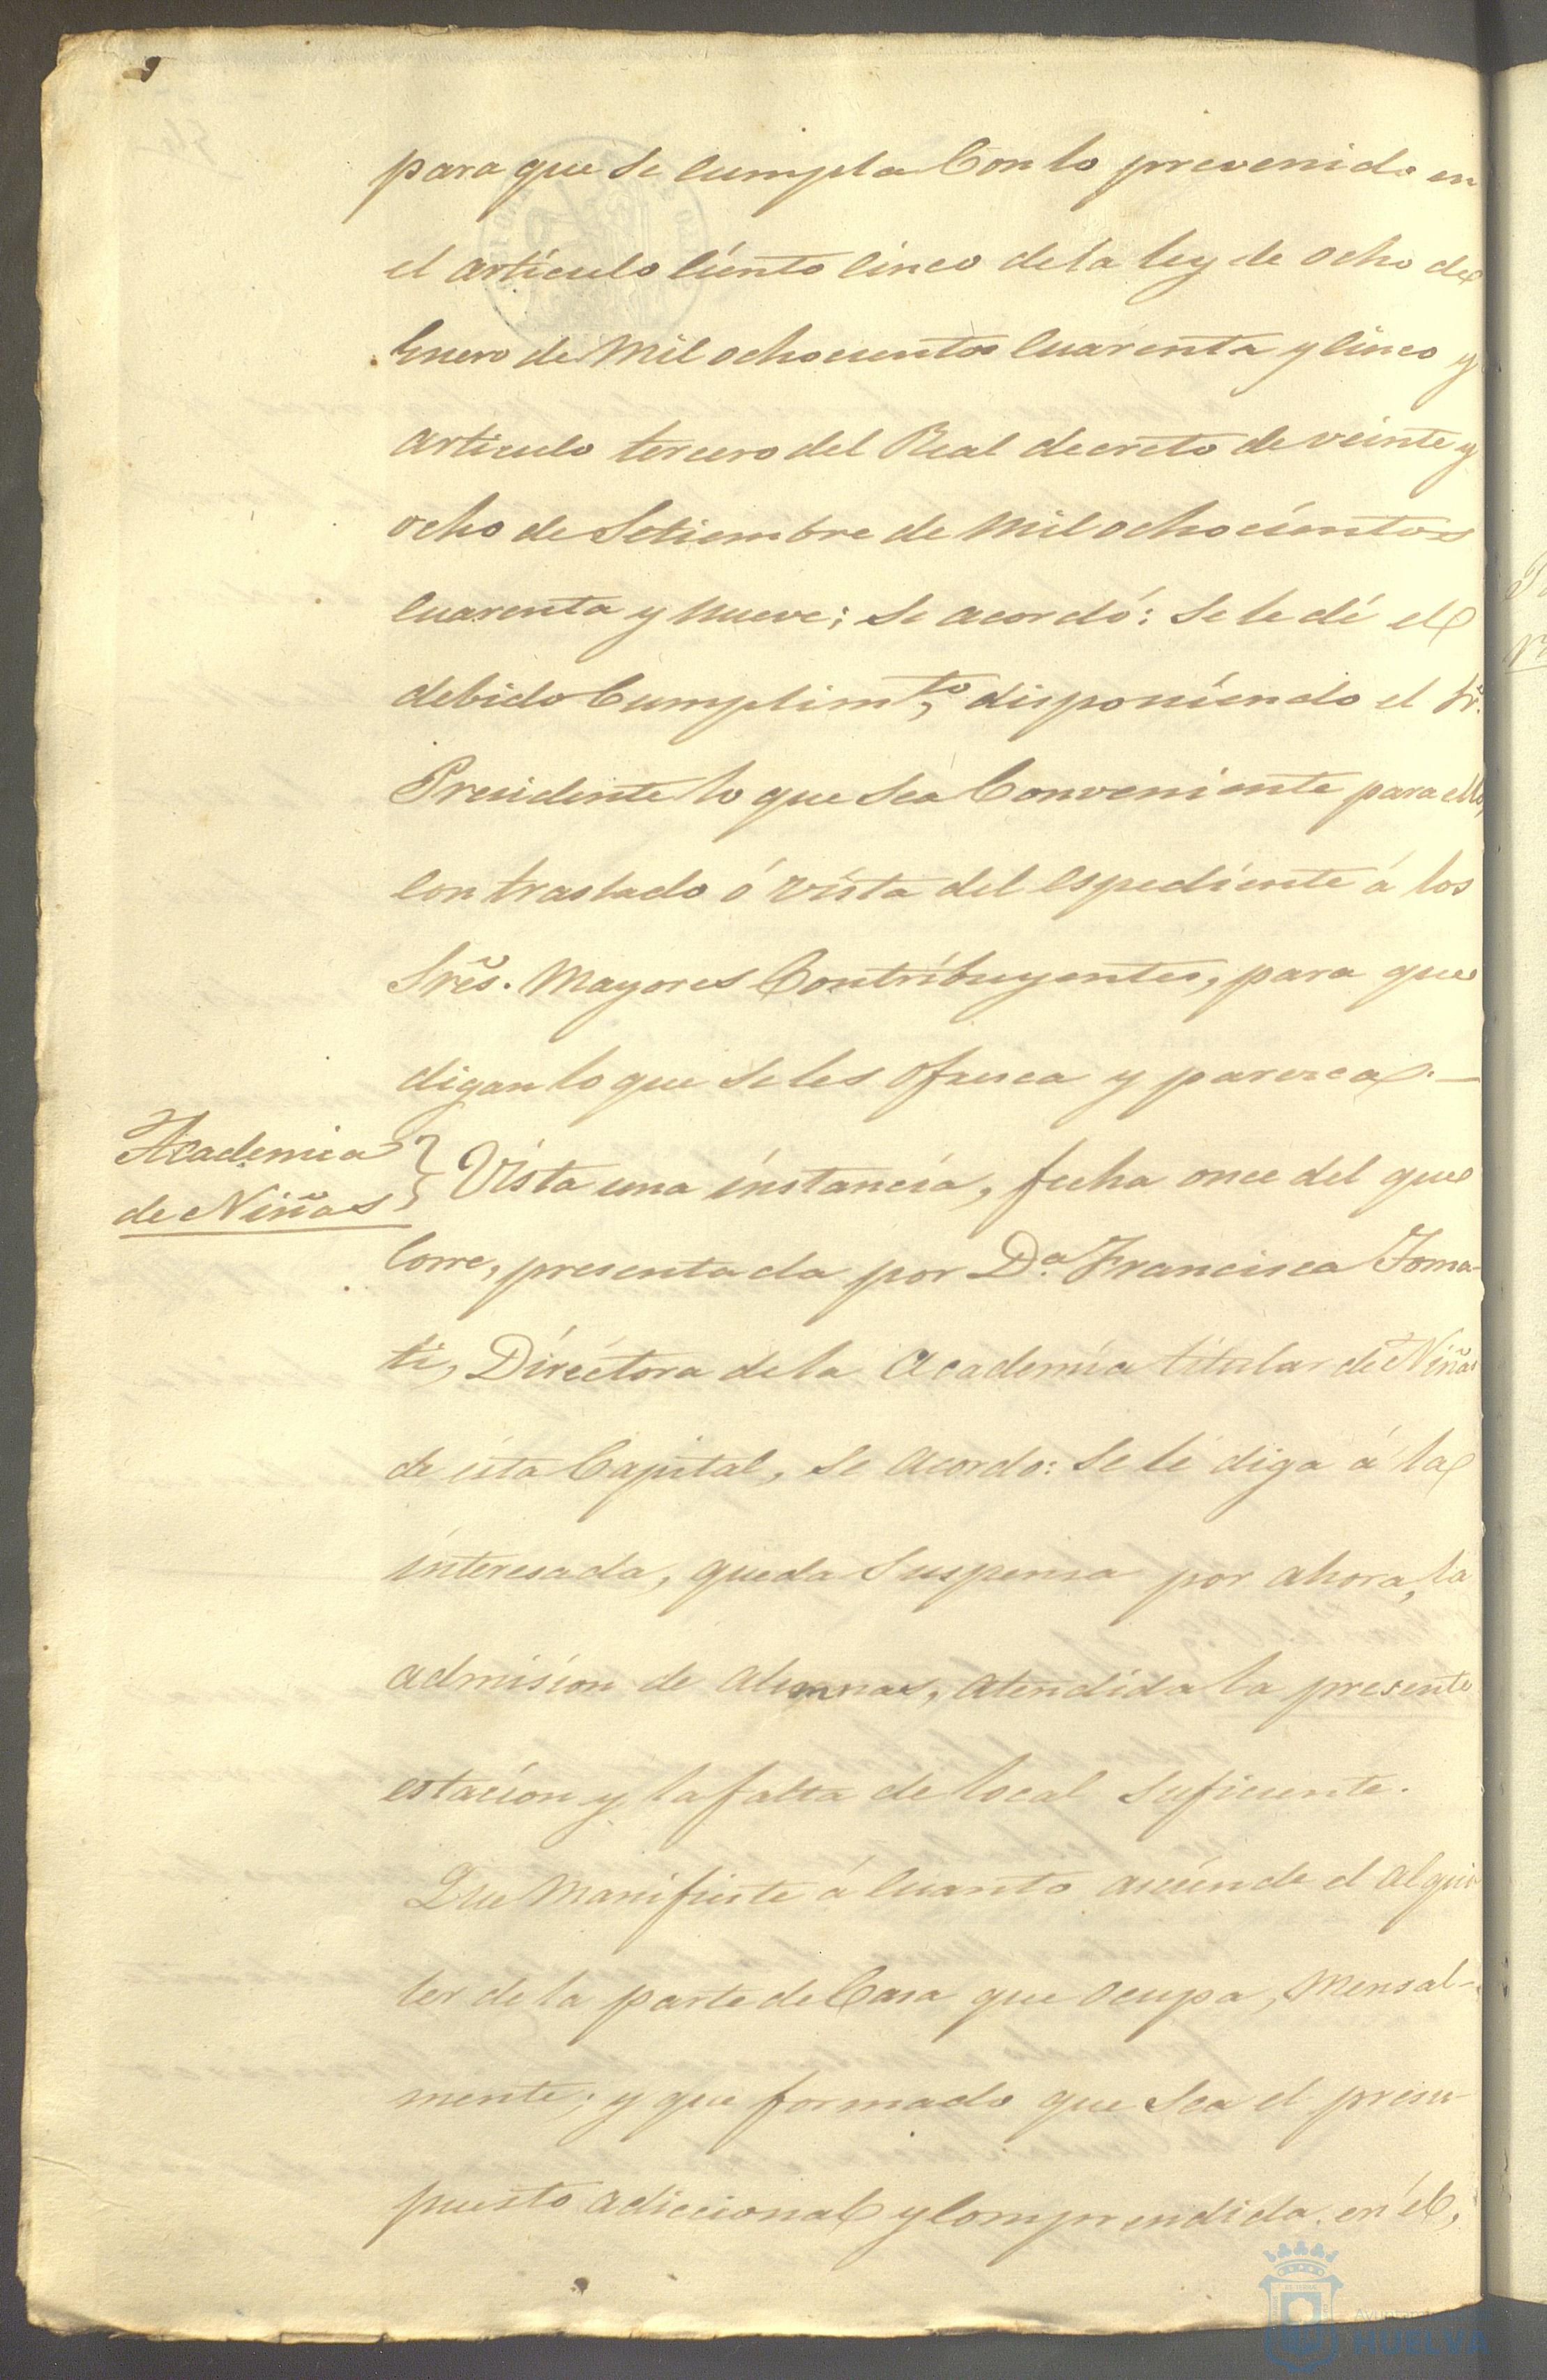 para que se cumpla Con lo prevenido en
el artículo ciento cinco de la ley de ocho de
Enero de Mil ochocientos cuarenta y cinco y
artículo tercero del Real decreto de veinte y
ocho de Setiembre de Mil ochocientos
cuarenta y nueve; se acordó: se le dé el
debido Cumplimto, disponiendo el Sr.
Presidente lo que sea Conveniente para ello,
con traslado ó vista del espediente á los
Sres. Mayores Contribuyentes, para que
digan lo que se les ofresca y paresca.—
Academia
de Niñas
Vista una instancia, fecha once del que
corre, presentada por Da. Francisca Toma-
ti, Directora de la Academia titular de Niñas
de esta Capital, se acordo: se le diga á la
interesada, queda suspensa por ahora, la
admision de alumnas, atendida la presente
estacion y la falta de local suficiente.
Que Manifieste á cuanto asciende el alqui-
ler de la parte de Casa que ocupa, Mensal-
mente; y que formado que sea el presu-
puesto adiccional y comprendida en él,
HUELVA